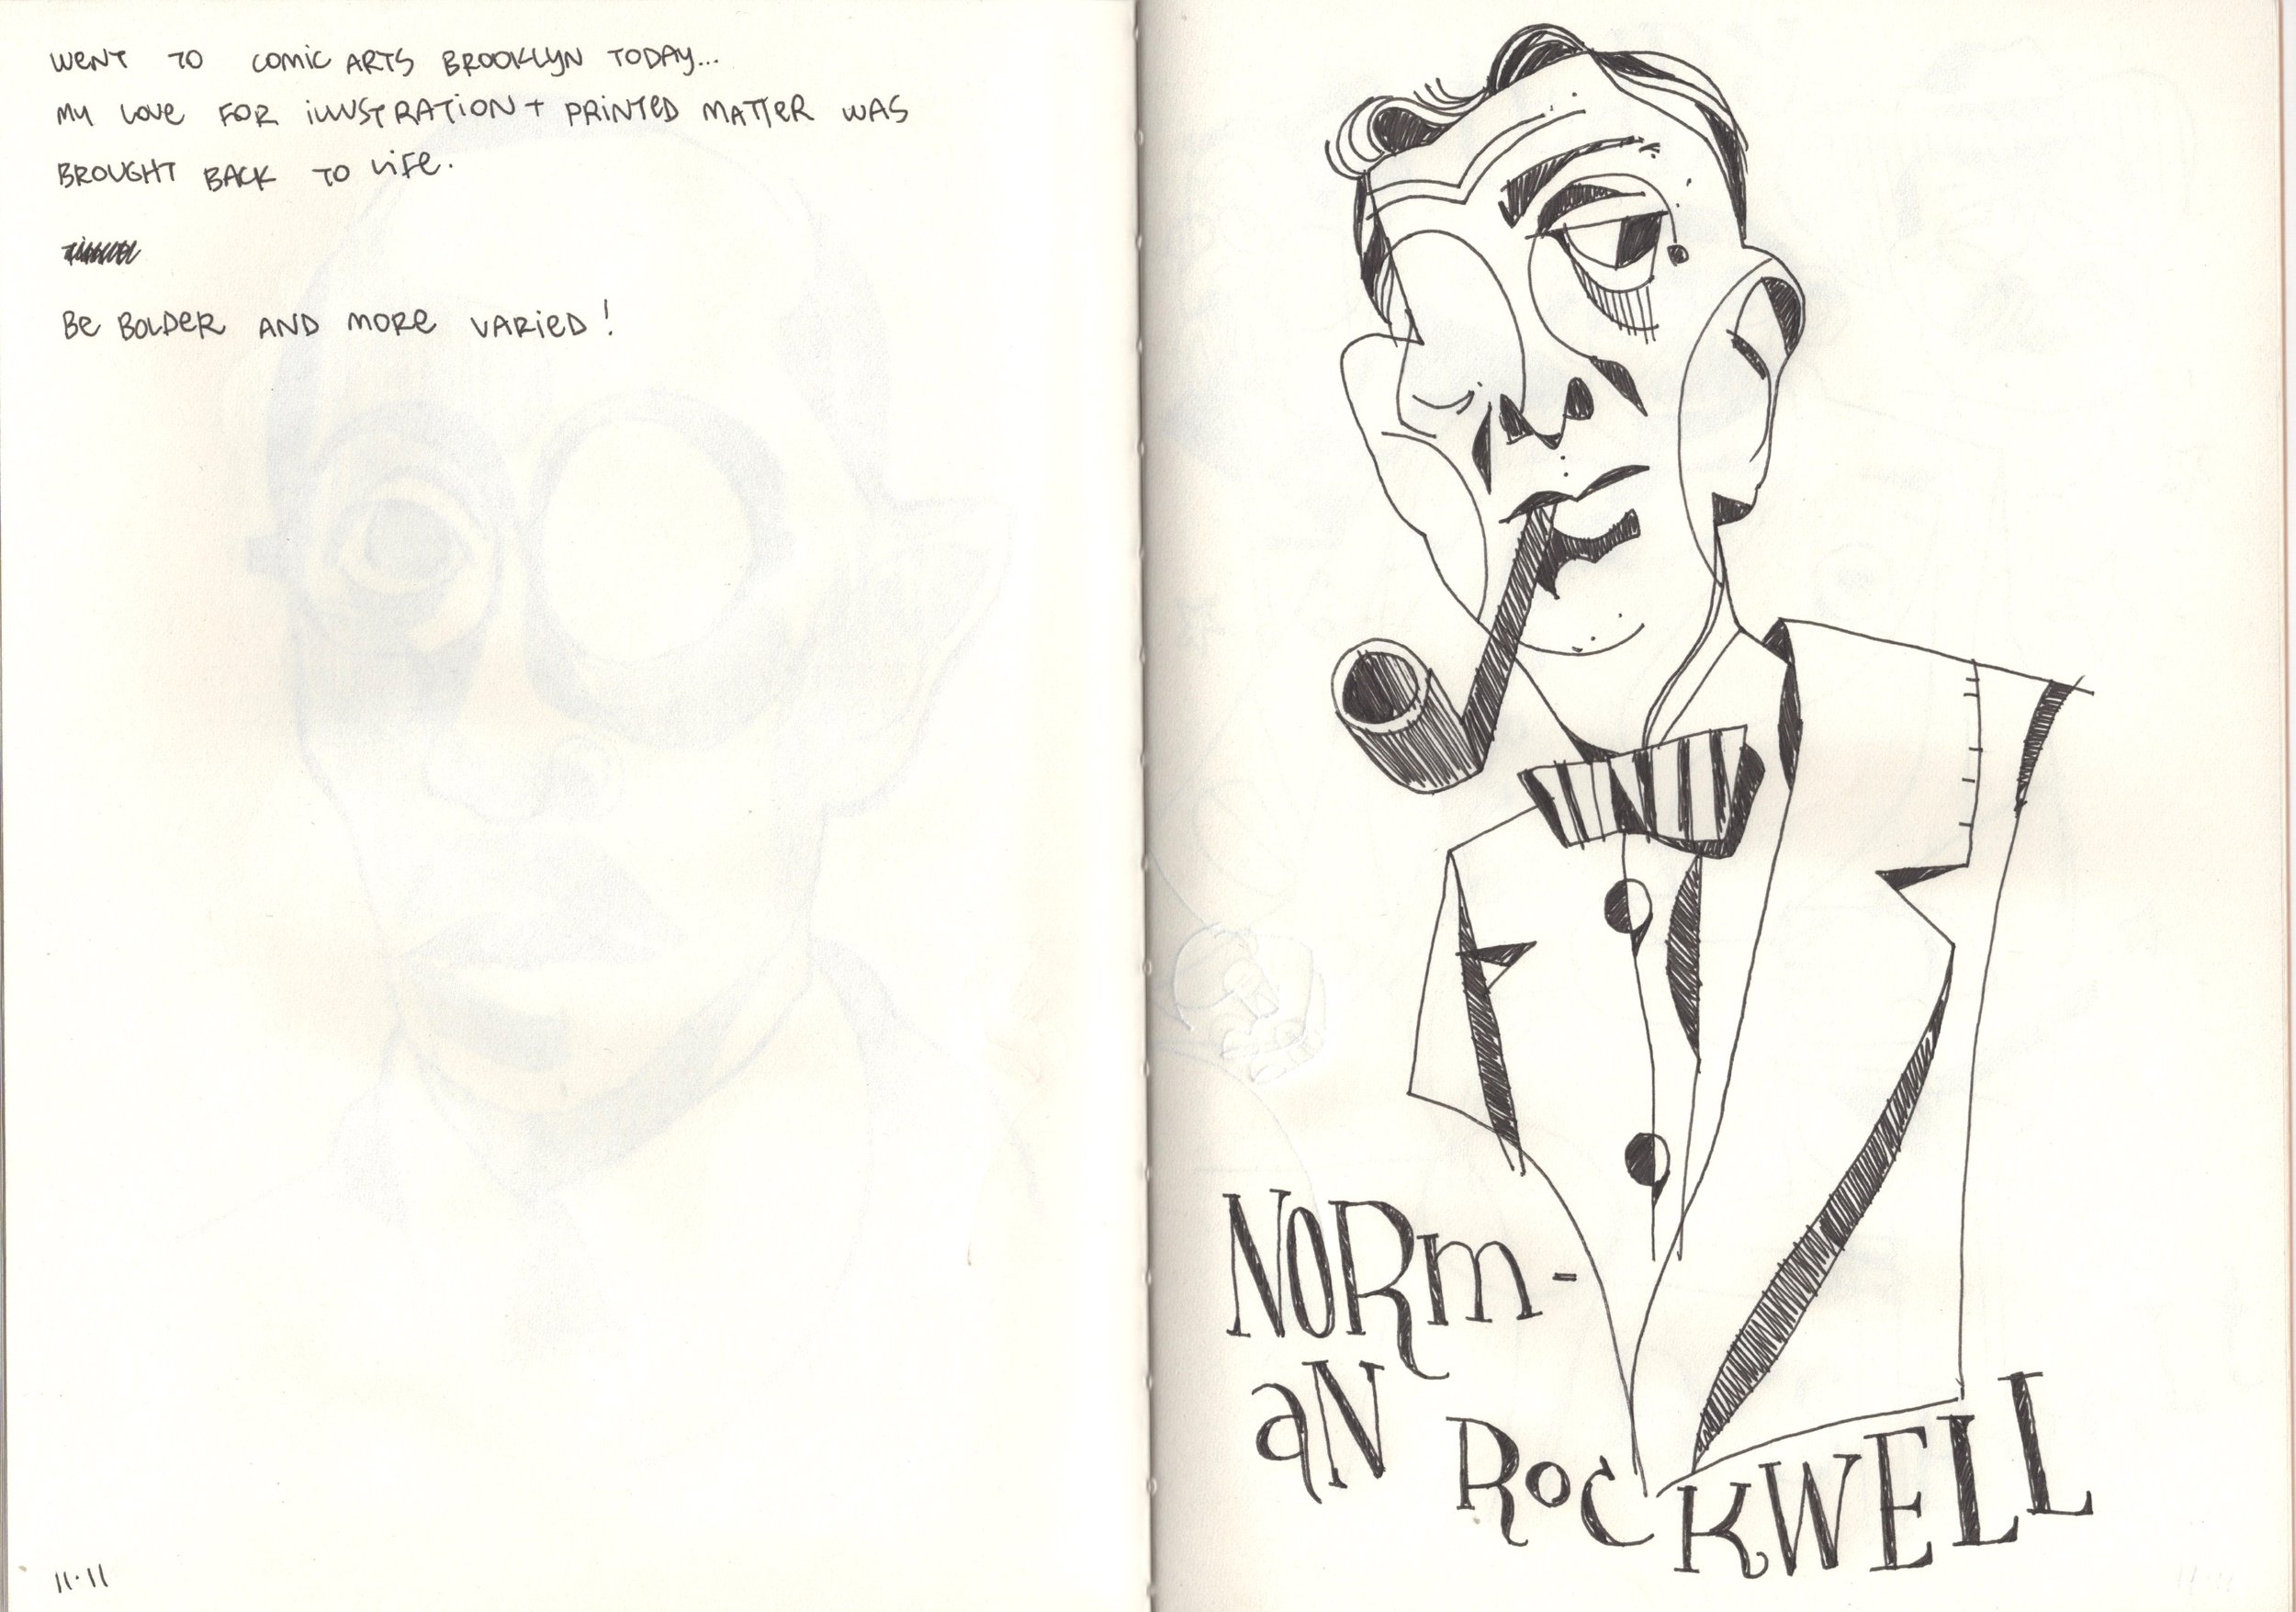 WENT TO COMIC ARTS BROOKLYN TODAY...
MY LOVE FOR ILLUSTRATION + PRINTED MATTER WAS
BROUGHT BACK TO LIFE.
BE BOLDER AND MORE VARIED!
11.11
NORM-
AN
ROCKWELL